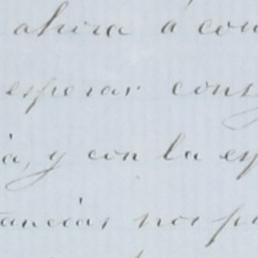 ahora á con
esperar cons
a, y con la es
tancias nos p